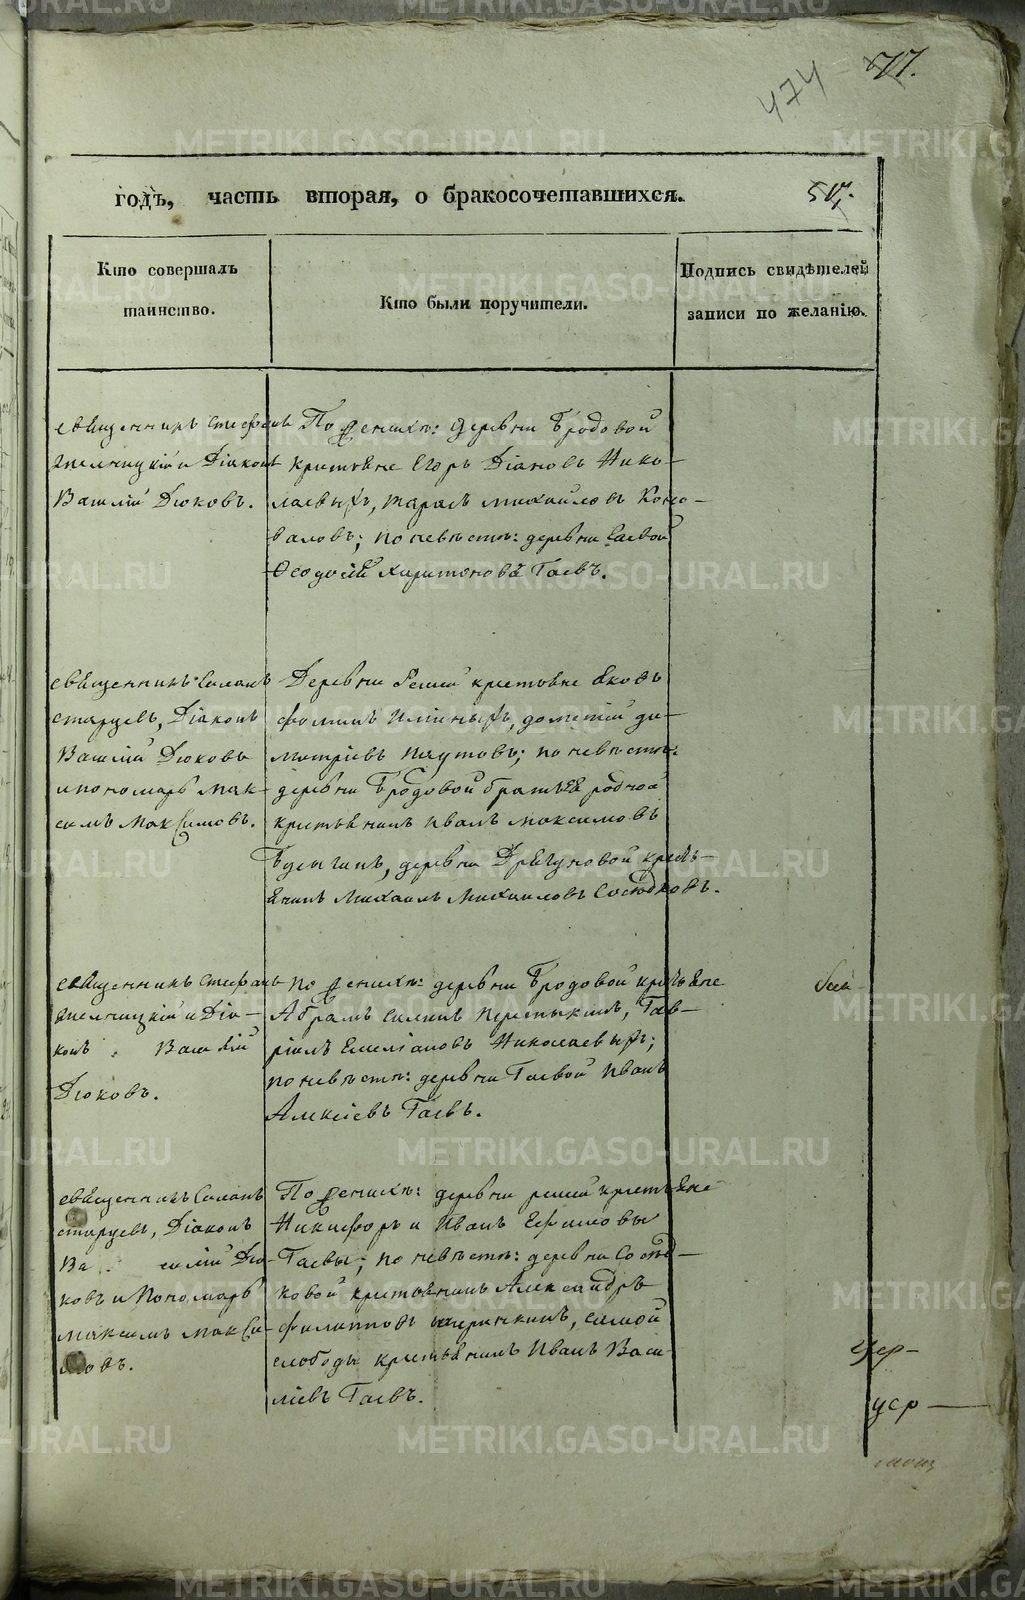 474
годъ, часть вторая, о бракосочетавшихся.
Кто совершалъ
таинство.
Кто были поручители.
Подпись свидѣтелей
записи по желанію.
священникъ Стефанъ
и Діаконъ
Василій Дюковъ.
По женихѣ: деревни Бродовой
крестьяне Егоръ Діановъ Нико-
лаевыхъ, Тарасъ Михайловъ Коно-
валовъ; по невѣстѣ: деревни Гаевой
Ѳеодосій Харитоновъ Гаевъ.
священникъ Симонъ
Старцевъ, Діаконъ
Василій Дюковъ
и пономарь Мак-
симъ Максимовъ.
Деревни Решей крестьяне Яковъ
Фоминъ, Дометій Ди-
митріевъ; по невѣстѣ:
деревни Бродовой братъ ея родной
крестьянинъ Иванъ Максимовъ
деревни крестья-
янинъ Михаилъ Михаиловъ Сосѣдковъ.
священникъ Стефанъ
и Діа-
конъ Василій
Дюковъ.
по женихѣ: деревни Бродовой крестьяне
Абрамъ Перетыкинъ, Гав-
ріилъ Емеліановъ Николаевыхъ;
по невѣстѣ: деревни Гаевой Иванъ
Алексіевъ Гаевъ.
священникъ Симонъ
Старцевъ, Діаконъ
Василій Дю-
ковъ и Пономарь
Максимъ Макси-
мовъ.
По женихѣ: деревни Решей крестьяне
Никифоръ и Иванъ Ефимовы
Гаевы; по невѣстѣ: деревни Сосѣд-
ковой крестьянинъ Александръ
Филиповъ, самой
слободы крестьянинъ Иванъ Васи-
ліевъ Гаевъ.
METRIKI.GASO-URAL.RU